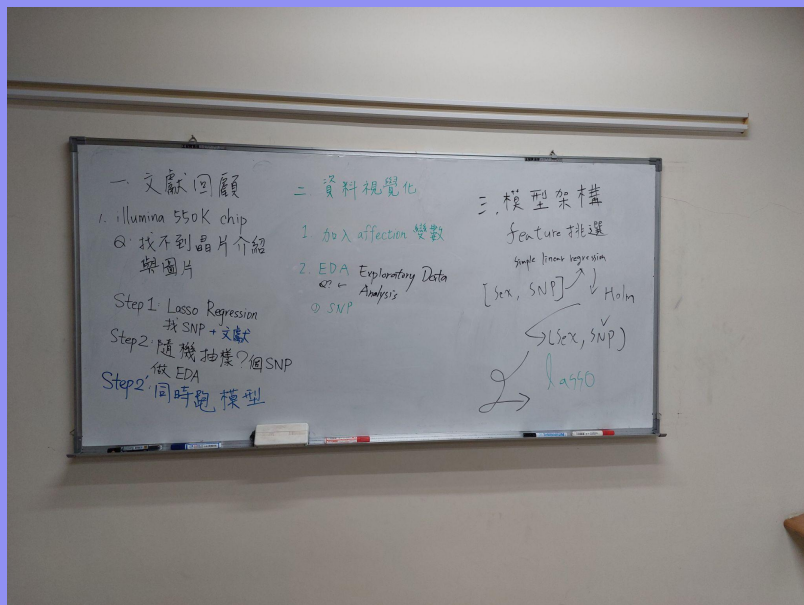 一、文獻回顧
1. illumina 550K chip
Q: 找不到晶片介紹
與圖片
Step 1: Lasso Regression
找 SNP + 文獻
Step 2: 隨機抽樣?個SNP
做 EDA
Step2': 同時跑模型
二、資料視覺化
1. 加入 affection 變數
2. EDA Exploratory Data
Analysis
① SNP
三、模型架構
feature 挑選
simple linear regression
[Sex, SNP]
Holm
(Sex, SNP)
lasso